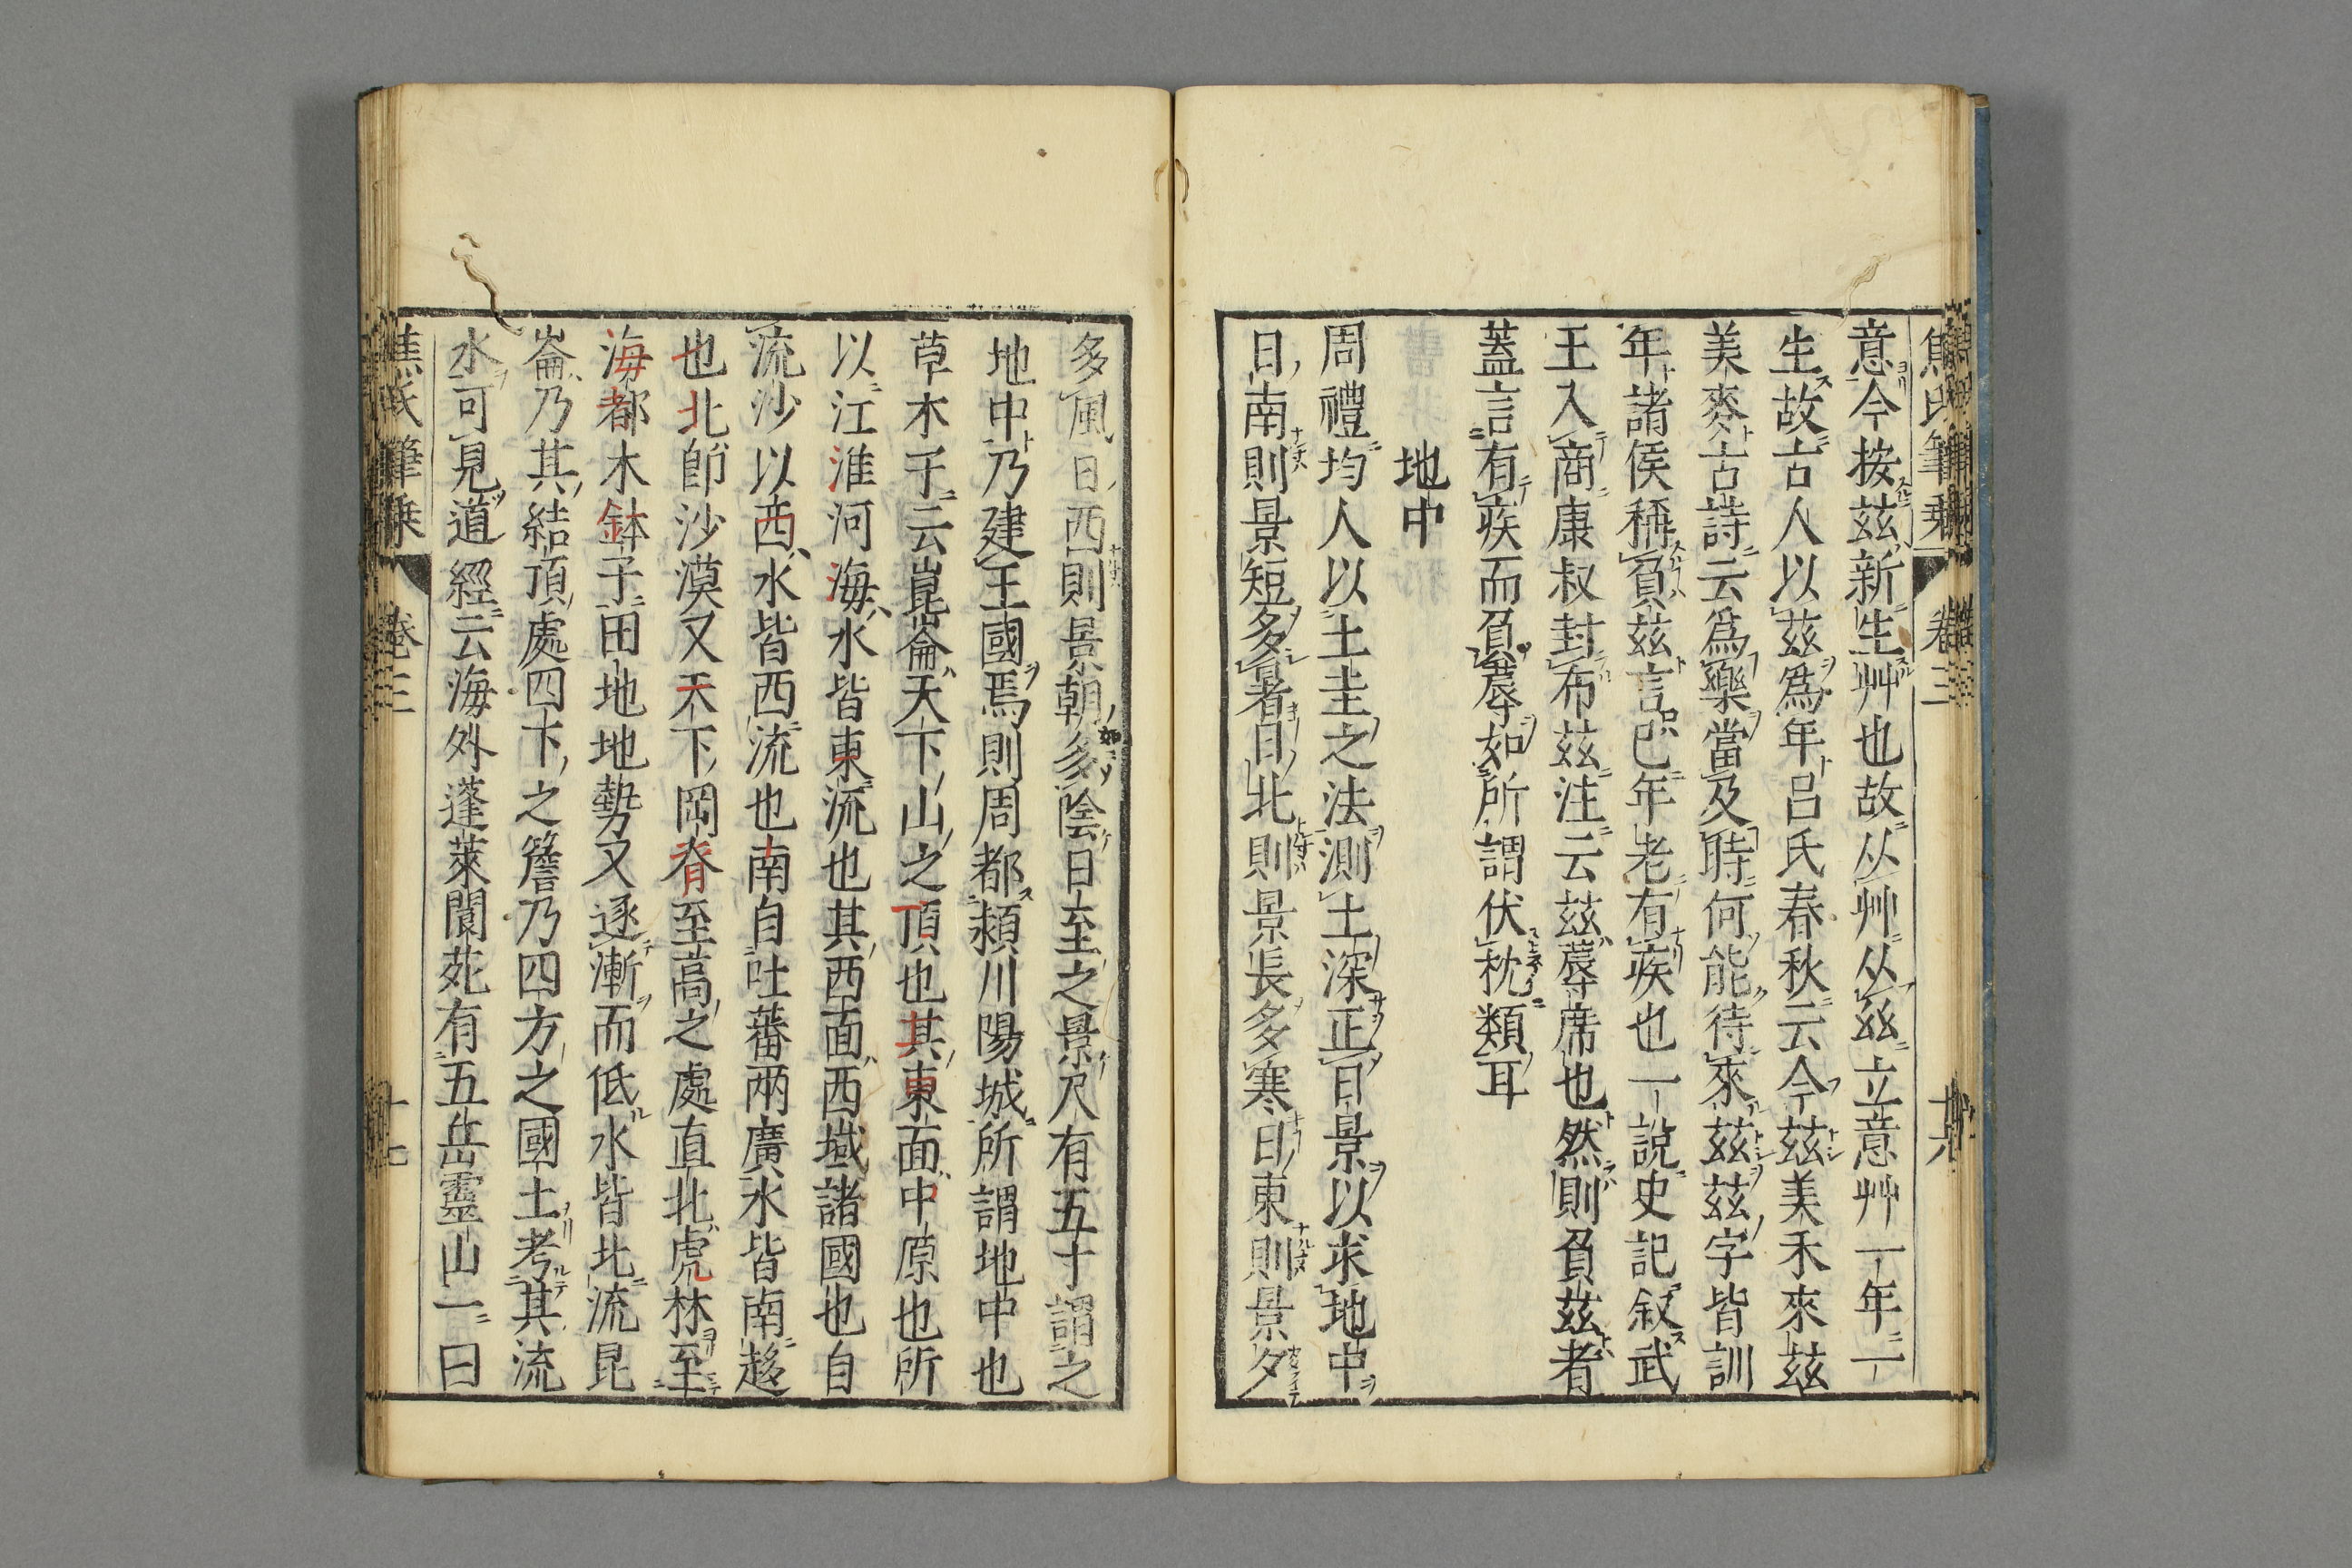 焦氏筆乗 卷三 十六
意今按茲新生艸也故从艸从絲立意艸一年一
生故古人以茲爲年呂氏春秋云今茲美禾來茲
美麥古詩云爲樂當及時何能待來茲茲字皆訓
年諸侯稱負茲言已年老有疾也一說史記叙武
王入商康叔封布茲注云茲蓐席也然則負茲者
蓋言有疾而負蓐如所謂伏枕類耳
地中
周禮均人以土圭之法測土深正日景以求地中
日南則景短多暑日北則景長多寒日東則景夕
多風日西則景朝多陰日至之景尺有五寸謂之
地中乃建王國焉則周都潁川陽城所謂地中也
草木子云崑崙天下山之頂也其東面中原也所
以江淮河海水皆東流也其西面西域諸國也自
流沙以西水皆西流也南自吐蕃兩廣水皆南趍
也北卽沙漠又天下岡脊至高之處直北虎林至
海都木鉢子田地地勢又逐漸而低水皆北流昆
崙乃其結頂處四下之簷乃四方之國土考其流
水可見道經云海外蓬萊閬苑有五岳靈山一曰
焦氏筆乗 卷三 十七